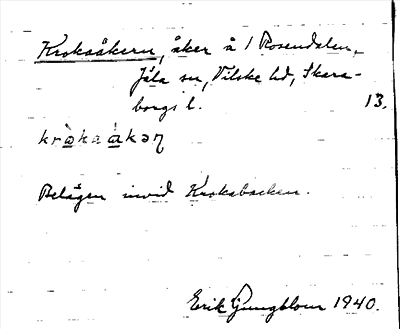 Kroksåkern, åker å 1 Rosendalen,
Jäla sn, Vilske hd, Skara-
borgs l. 13.
kròkaákəɳ
Belägen invid Kroksbacken.
Erik Ljungblom 1940.